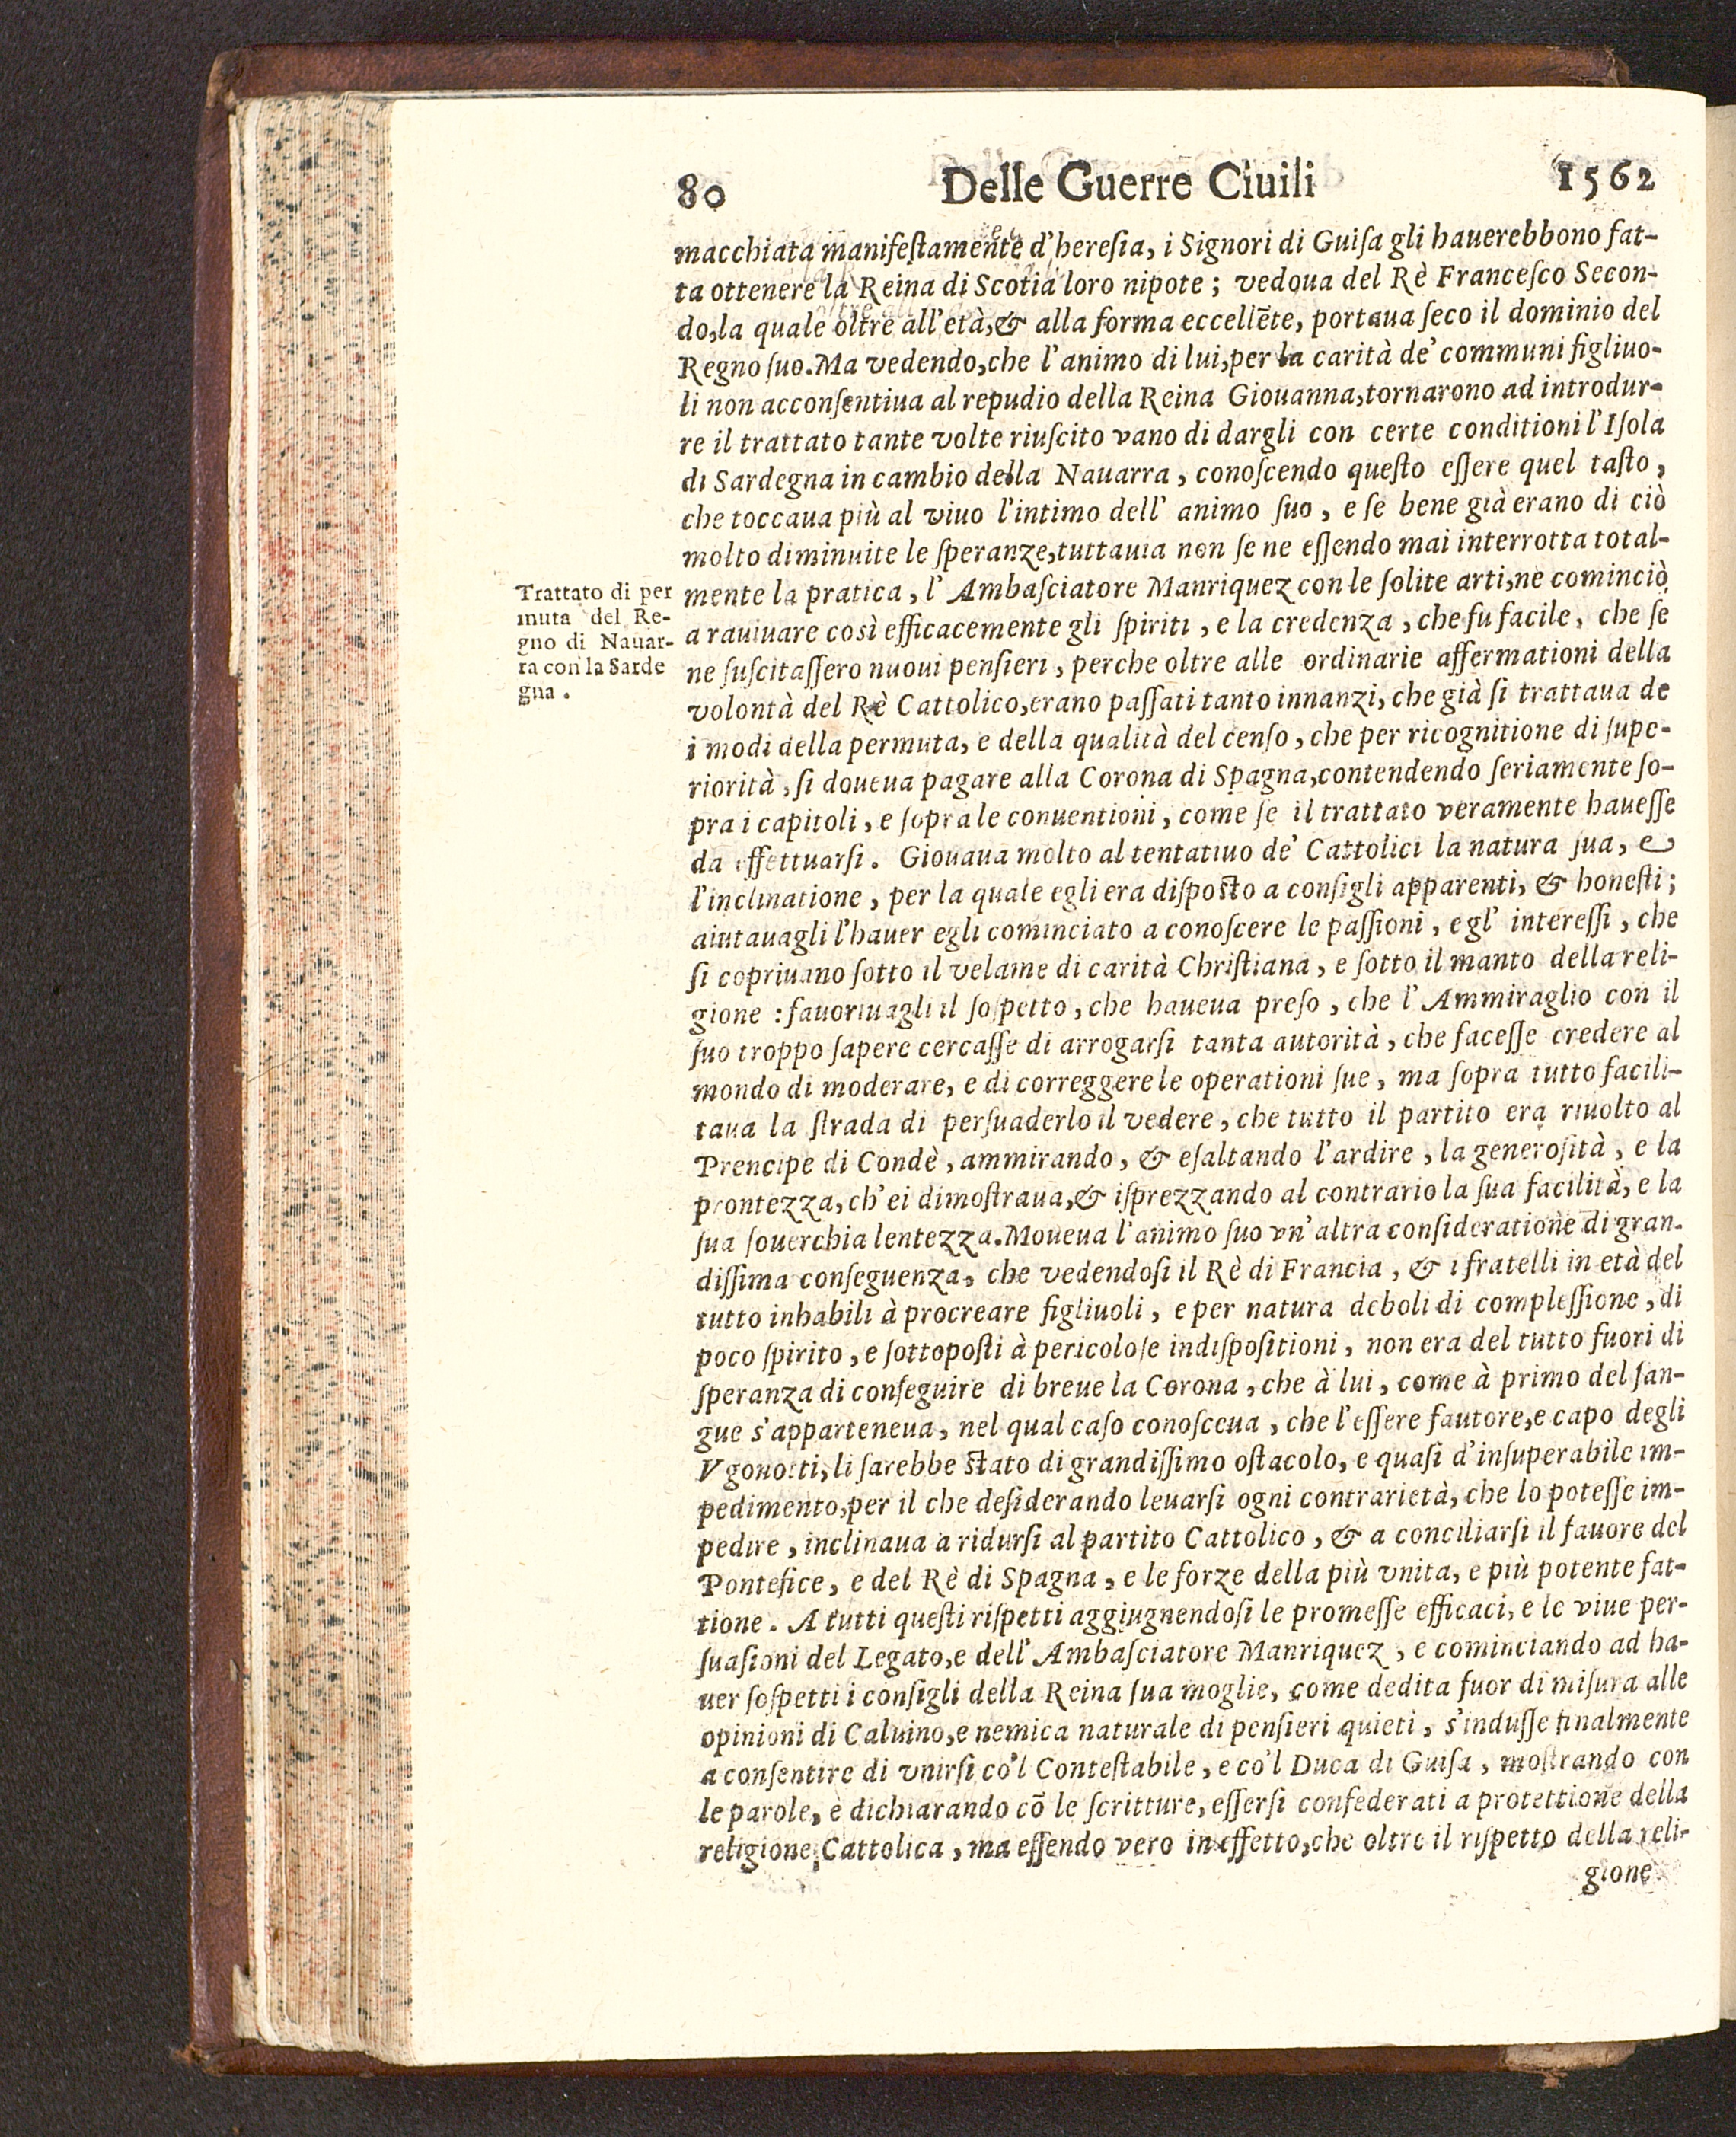 80 Delle Guerre Ciuili 1562
macchiata manifeſtamente d'hereſia, i Signori di Guiſa gli hauerebbono fat-
ta ottenere la Reina di Scotia loro nipote; vedoua del Rè Franceſco Secon-
do,la quale oltre all'età,& alla forma eccellēte, portaua ſeco il dominio del
Regno ſuo.Ma vedendo,che l'animo di lui,per la carità de' communi figliuo-
li non acconſentiua al repudio della Reina Giouanna,tornarono ad introdur-
re il trattato tante volte riuſcito vano di dargli con certe conditioni l'Iſola
di Sardegna in cambio della Nauarra, conoſcendo queſto eſſere quel taſto,
che toccaua più al viuo l'intimo dell' animo ſuo, e ſe bene già erano di ciò
molto diminuite le ſperanze,tuttauia non ſe ne eſſendo mai interrotta total-
Trattato di per
muta del Re-
gno di Nauar-
ra con la Sarde
gna.
mente la pratica, l' Ambaſciatore Manriquez con le ſolite arti,ne cominciò
a rauiuare così efficacemente gli ſpiriti, e la credenza, che fu facile, che ſe
ne ſuſcitaſſero nuoui penſieri, perche oltre alle ordinarie affermationi della
volontà del Rè Cattolico,erano paſſati tanto innanzi, che già ſi trattaua de
i modi della permuta, e della qualità del cenſo, che per ricognitione di ſupe-
riorità, ſi doueua pagare alla Corona di Spagna,contendendo ſeriamente ſo-
pra i capitoli, e ſopra le conuentioni, come ſe il trattato veramente haueſſe
da effettuarſi. Giouaua molto al tentatiuo de' Cattolici la natura ſua, e
l'inclinatione, per la quale egli era diſpoſto a conſigli apparenti, & honeſti;
aiutauagli l'hauer egli cominciato a conoſcere le paſſioni, e gl' intereſſi, che
ſi copriuano ſotto il velame di carità Chriſtiana, e ſotto il manto della reli-
gione: fauoriuagli il ſoſpetto, che haueua preſo, che l' Ammiraglio con il
ſuo troppo ſapere cercaſſe di arrogarſi tanta autorità, che faceſſe credere al
mondo di moderare, e di correggere le operationi ſue, ma ſopra tutto facili-
taua la ſtrada di perſuaderlo il vedere, che tutto il partito era riuolto al
Prencipe di Condè, ammirando, & eſaltando l'ardire, la generoſità, e la
prontezza, ch'ei dimoſtraua,& iſprezzando al contrario la ſua facilità, e la
ſua ſouerchia lentezza.Moueua l'animo ſuo vn'altra conſideratione di gran-
diſſima conſeguenza, che vedendoſi il Rè di Francia, & i fratelli in età del
tutto inhabili à procreare figliuoli, e per natura deboli di compleſſione, di
poco ſpirito, e ſottopoſti à pericoloſe indiſpoſitioni, non era del tutto fuori di
ſperanza di conſeguire di breue la Corona, che à lui, come à primo del ſan-
gue s'apparteneua, nel qual caſo conoſceua, che l'eſſere fautore,e capo degli
Vgonotti,li ſarebbe ſtato di grandiſſimo oſtacolo, e quaſi d'inſuperabile im-
pedimento,per il che deſiderando leuarſi ogni contrarietà, che lo poteſſe im-
pedire, inclinaua a ridurſi al partito Cattolico, & a conciliarſi il fauore del
Pontefice, e del Rè di Spagna, e le forze della più vnita, e più potente fat-
tione. A tutti queſti riſpetti aggiugnendoſi le promeſſe efficaci, e le viue per-
ſuaſioni del Legato,e dell' Ambaſciatore Manriquez, e cominciando ad ha-
uer ſoſpetti i conſigli della Reina ſua moglie, come dedita fuor di miſura alle
opinioni di Caluino,e nemica naturale di penſieri quieti, s'induſſe finalmente
a conſentire di vnirſi co'l Conteſtabile, e co'l Duca di Guiſa, moſtrando con
le parole, e dichiarando cō le ſcritture, eſſerſi confederati a protettione della
religione Cattolica, ma eſſendo vero in effetto,che oltre il riſpetto della reli-
gione